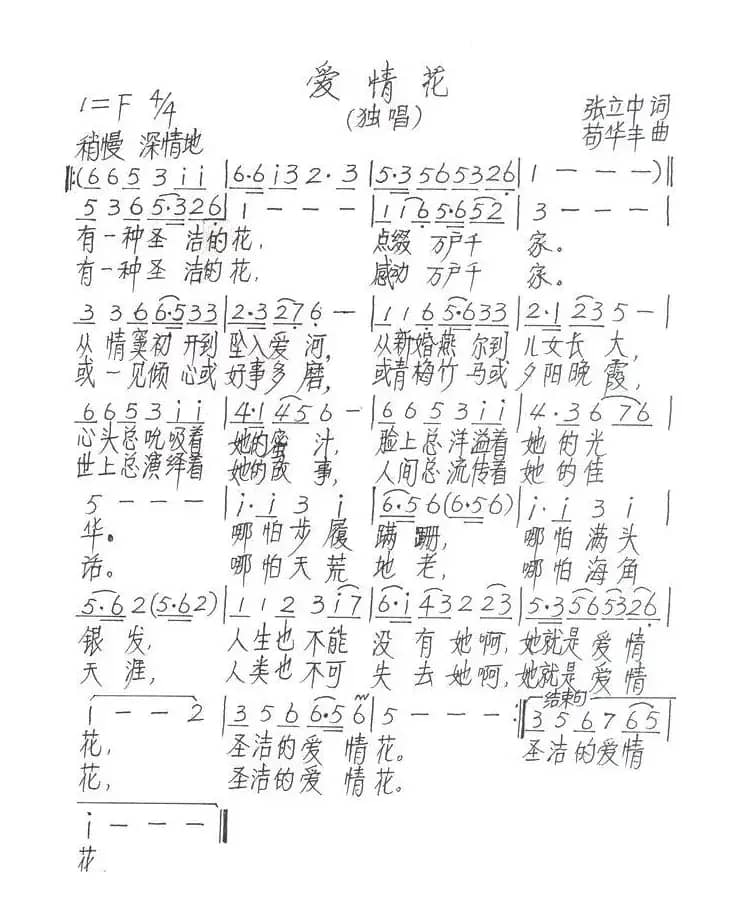 爱情花
(独唱)
1=F 4/4
张立中 词
稍慢 深情地
苟华丰 曲
‖:(6 6 5 3 i i | 6·6 i 3 2·3 | 5·3 5 6 5 3 2 6 | 1 - - -)‖
5 3 6 5·3 2 6 | 1 - - - | 1 1 6 5·6 5 2 | 3 - - - |
有一种圣 洁的花, 点缀 万户千 家。
有一种圣 洁的花, 感动 万户千 家。
3 3 6 6·5 3 3 | 2·3 2 7 6 - | 1 1 6 5·6 3 3 | 2·1 2 3 5 - |
从 情窦初 开到 坠入爱 河, 从新婚燕 尔到 儿女长 大,
或 一见倾 心或 好事多 磨, 或青梅竹 马或 夕阳晚 霞,
6 6 5 3 i i | 4·1 4 5 6 - | 6 6 5 3 i i | 4·3 6 7 6 |
心头总吮吸着 她的蜜 汁, 脸上总洋溢着 她 的光
世上总演绎着 她的故 事, 人间总流传着 她 的佳
5 - - - | i·i 3 i | 6·5 6 (6·5 6) | i·i 3 i |
华。 哪怕步履 蹒 跚, 哪怕满头
话。 哪怕天荒 地 老, 哪怕海角
5·6 2 (5·6 2) | 1 1 2 3 i 7 | 6·i 4 3 2 2 3 | 5·3 5 6 5 3 2 6 |
银 发, 人生也 不能 没 有她啊, 她就是 爱情
天 涯, 人类也 不可 失 去她啊, 她就是 爱情
结束句
i - - 2 | 3 5 6 6·5 6 | 5 - - - :‖ 3 5 6 7 6 5 |
花, 圣洁的爱 情花。 圣洁的爱情
花, 圣洁的爱 情花。
i - - - ‖
花